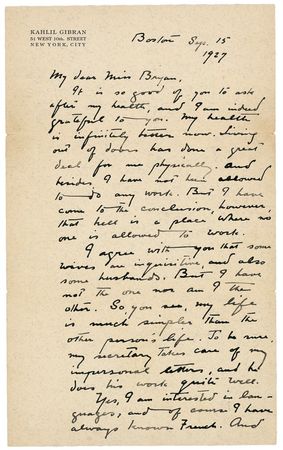 KAHLIL GIBRAN
51 WEST 10th. STREET
NEW YORK, CITY
Boston Sep. 15
1927
My dear Miss Bryan,
It is so good of you to ask
after my health, and I am indeed
grateful to you. My health
is infinitely better now. Living
out of doors has done a great
deal for me physically. And
besides, I have not been allowed
to do any work. But I have
come to the conclusion, however,
that hell is a place where no
one is allowed to work.
I agree with you that some
wives are inquisitive, and also
some husbands. But I have
not the one nor am I the
other. So, you see, my life
is much simpler than the
other person's life. To be sure,
my secretary takes care of my
impersonal letters, and he
does his work quite well.
Yes, I am interested in lan-
guages, and of course I have
always known French. And